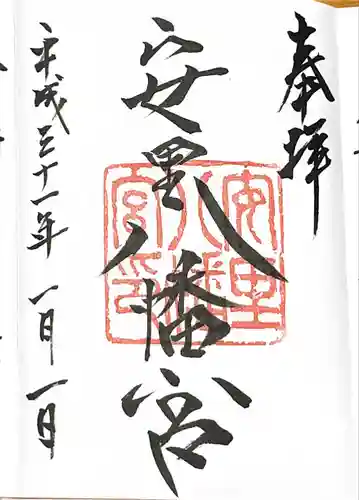 奉拝
安里八幡宮
平成三十一年 一月一日
安里八幡宮印